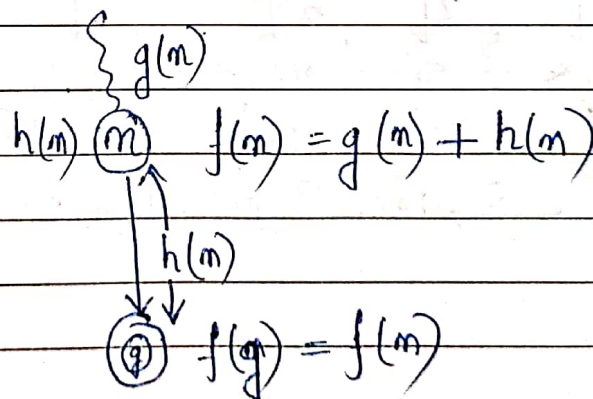 g(n)
h(n) n f(n) = g(n) + h(n)
h(n)
g f(g) = f(n)